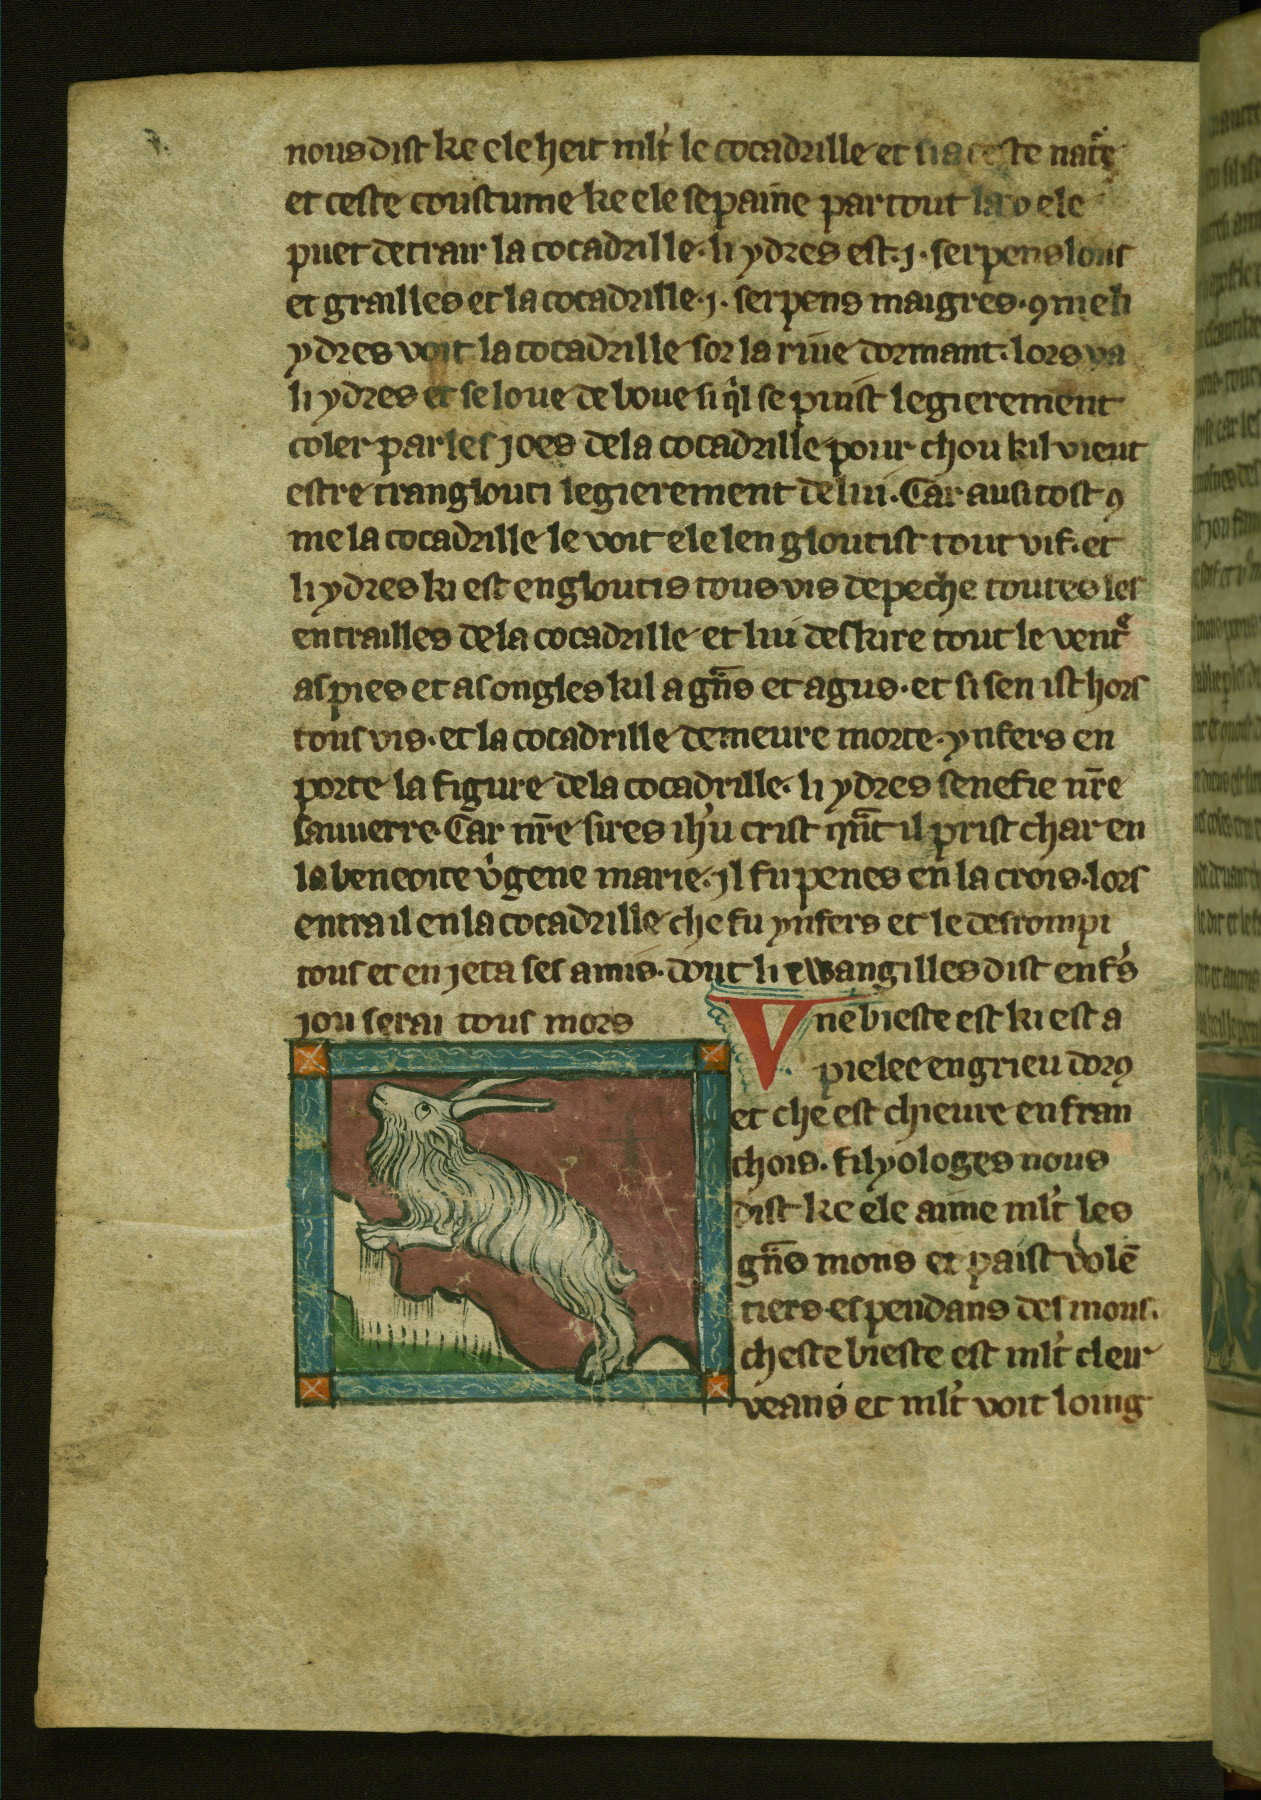 nous dist ke ele heit mlt' le cocadrille et si a ceste natꝛe
et ceste coustume ke ele se paine par tout la o ele
puet de trair la cocadrille· li ydres est ·j· serpens lons
et grailles et la cocadrille ·j· serpens maigres· ꝯme li
ydres voit la cocadrille sor la riue dormant· lors va
li ydres et se loue de boue si q̍l se puist legierement
coler par les joes de la cocadrille pour chou kil vient
estre tranglouti legierement de lui· Car ausi tost ꝯ
me la cocadrille le voit ele len gloutist tout vif· et
li ydres ki est engloutis tous vis depeche toutes les
entrailles de la cocadrille et lui deskire tout le ventͤ
as pies et as ongles kil a gñs et agus· et si sen ist hors
tous vis· et la cocadrille demeure morte· ynfers en
porte la figure de la cocadrille· li ydres senefie nr̄e
sauuerre· Car nr̄e sires ih'u crist qn̄t il prist char en
la beneoite v'gene marie· jl fu penes en la crois· lors
entra il en la cocadrille che fu ynfers et le desrompi
tous et en jeta ses amis· dont li ewangilles dist enf's
jou serai tous mors
Vne bieste est ki est a
pielee en grieu dorꝯ
et che est chieure en fran
chois· filyologes nous
dist ke ele aime mlt' les
gñs mons et paist volē
tiers es pendans des mons·
cheste bieste est mlt' cleir
veans et mlt' voit loing